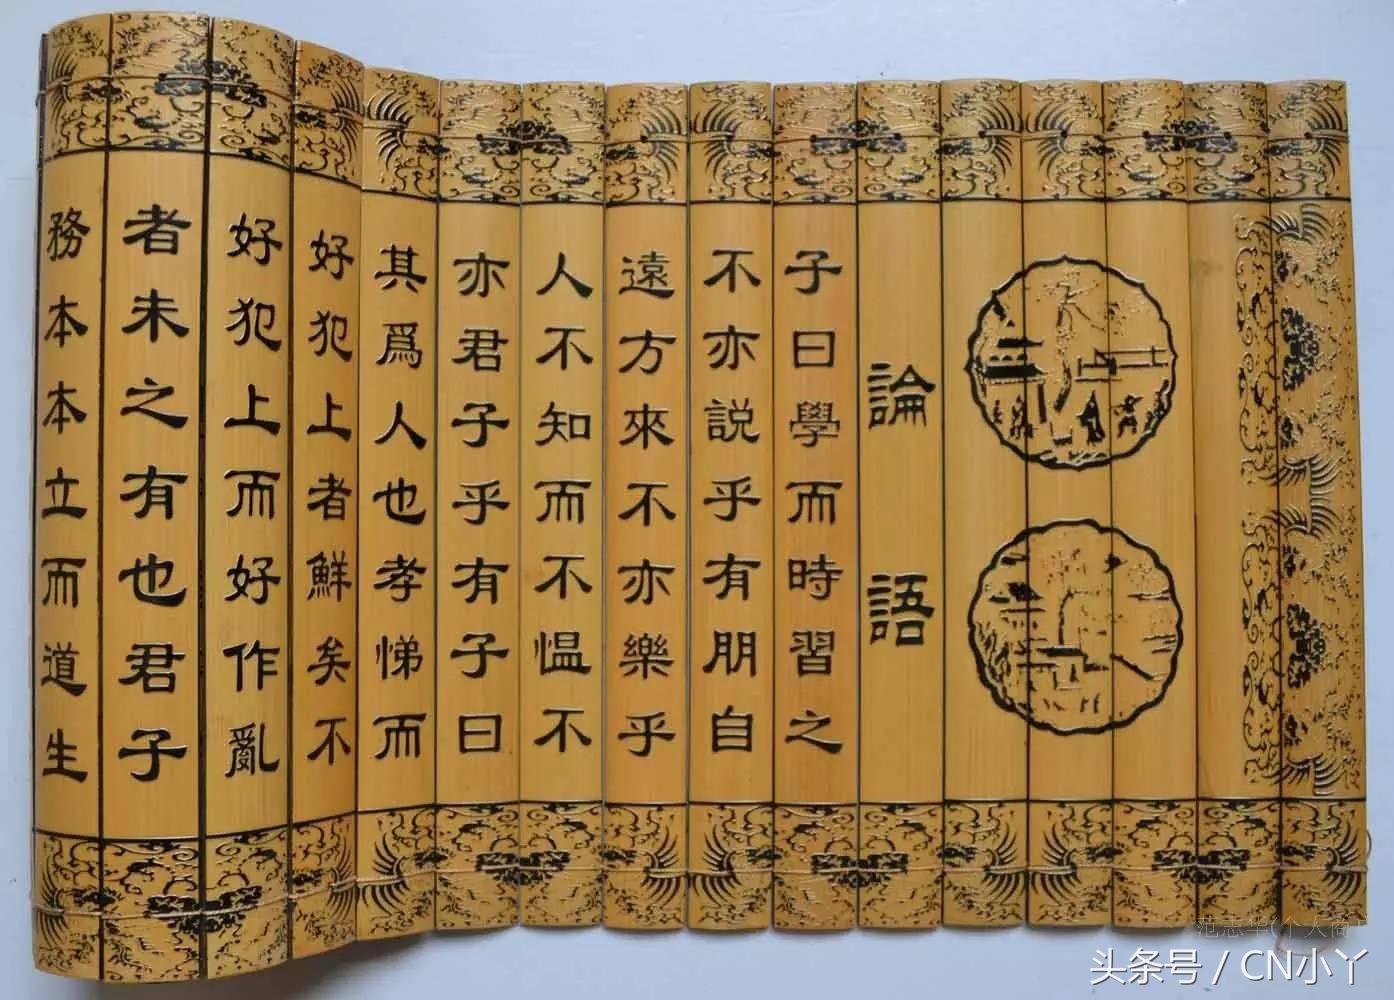 論語
子曰學而時習之
不亦説乎有朋自
遠方來不亦樂乎
人不知而不愠不
亦君子乎有子曰
其爲人也孝悌而
好犯上者鮮矣不
好犯上而好作亂
者未之有也君子
務本本立而道生
范志华(个人商)
头条号 / CN小丫